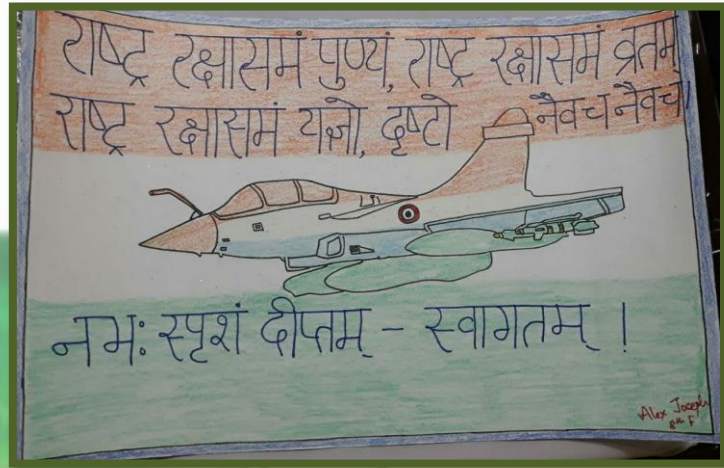 राष्ट्र रक्षासमं पुण्यं, राष्ट्र रक्षासमं व्रतम
राष्ट्र रक्षासमं यज्ञो, दृष्टो नैवच नैवच।
नभः स्पृशं दीप्तम् - स्वागतम् !
Alex Joseph
8th F